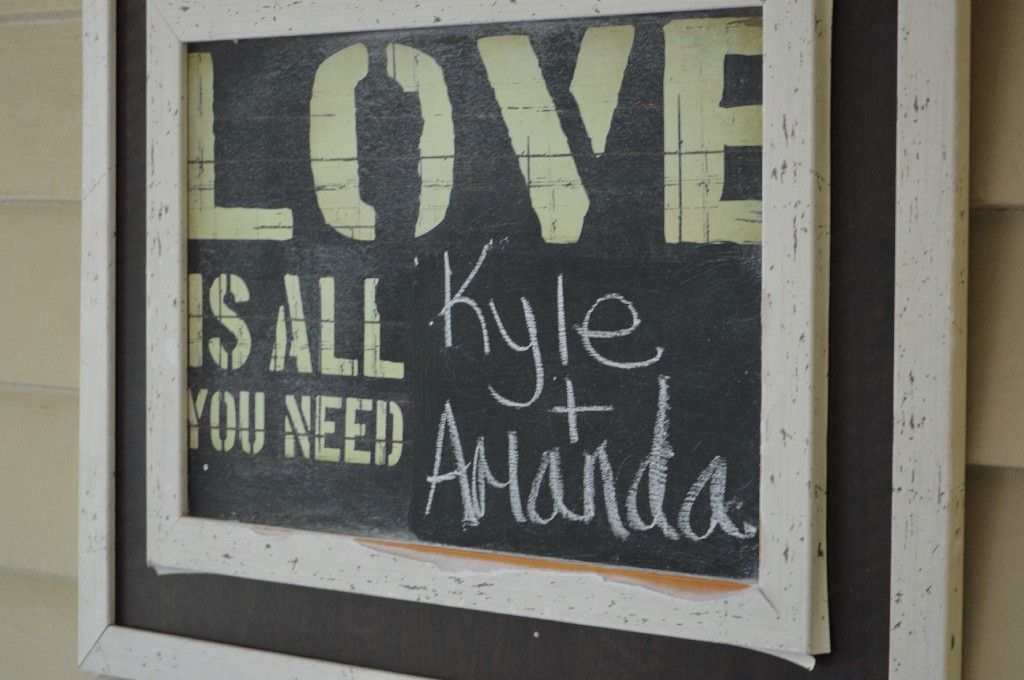 LOVE
IS ALL
YOU NEED
Kyle
+
Amanda